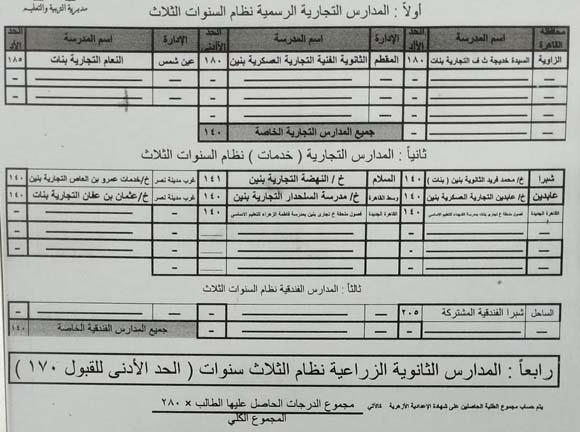 مديرية التربية والتعليم
أولاً : المدارس التجارية الرسمية نظام السنوات الثلاث
محافظة القاهرة اسم المدرسة الحد الأدنى الإدارة اسم المدرسة الحد الأدنى الإدارة اسم المدرسة الحد الأد
الزاوية السيدة خديجة ث ف التجارية بنات ١٨٠ المقطم الثانوية الفنية التجارية العسكرية بنين ١٨٠ عين شمس النعام التجارية بنات ١٨٥
جميع المدارس التجارية الخاصة ١٤٠
ثانياً : المدارس التجارية ( خدمات ) نظام السنوات الثلاث
شبرا خ/ محمد فريد الثانوية بنين ( بنات ) ١٤٠ السلام خ / النهضة التجارية بنين ١٤١ غرب مدينة نصر خ/خدمات عمرو بن العاص التجارية بنين ١٤٠
عابدين خ/ عابدين التجارية العسكرية بنين ١٤٠ وسط القاهرة خ/ مدرسة السلحدار التجارية بنين ١٤٠ غرب مدينة نصر خ/عثمان بن عفان التجارية بنات ١٤٠
القاهرة الجديدة فصول ملحقة خ تجارى بنات بمدرسة الشهداء للتعليم الاساسي ١٤٠ القاهرة الجديدة فصول ملحقة خ تجارى بنين بمدرسة فاطمة الزهراء للتعليم الاساسي ١٤٠
ثالثاً : المدارس الفندقية نظام السنوات الثلاث
الساحل شبرا الفندقية المشتركة ٢٠٥
جميع المدارس الفندقية الخاصة ١٤٠
رابعاً : المدارس الثانوية الزراعية نظام الثلاث سنوات ( الحد الأدنى للقبول ١٧٠ )
يتم حساب مجموع الطلبة الحاصلين على شهادة الإعدادية الأزهرية كالآتي مجموع الدرجات الحاصل عليها الطالب × ٢٨٠
المجموع الكلي